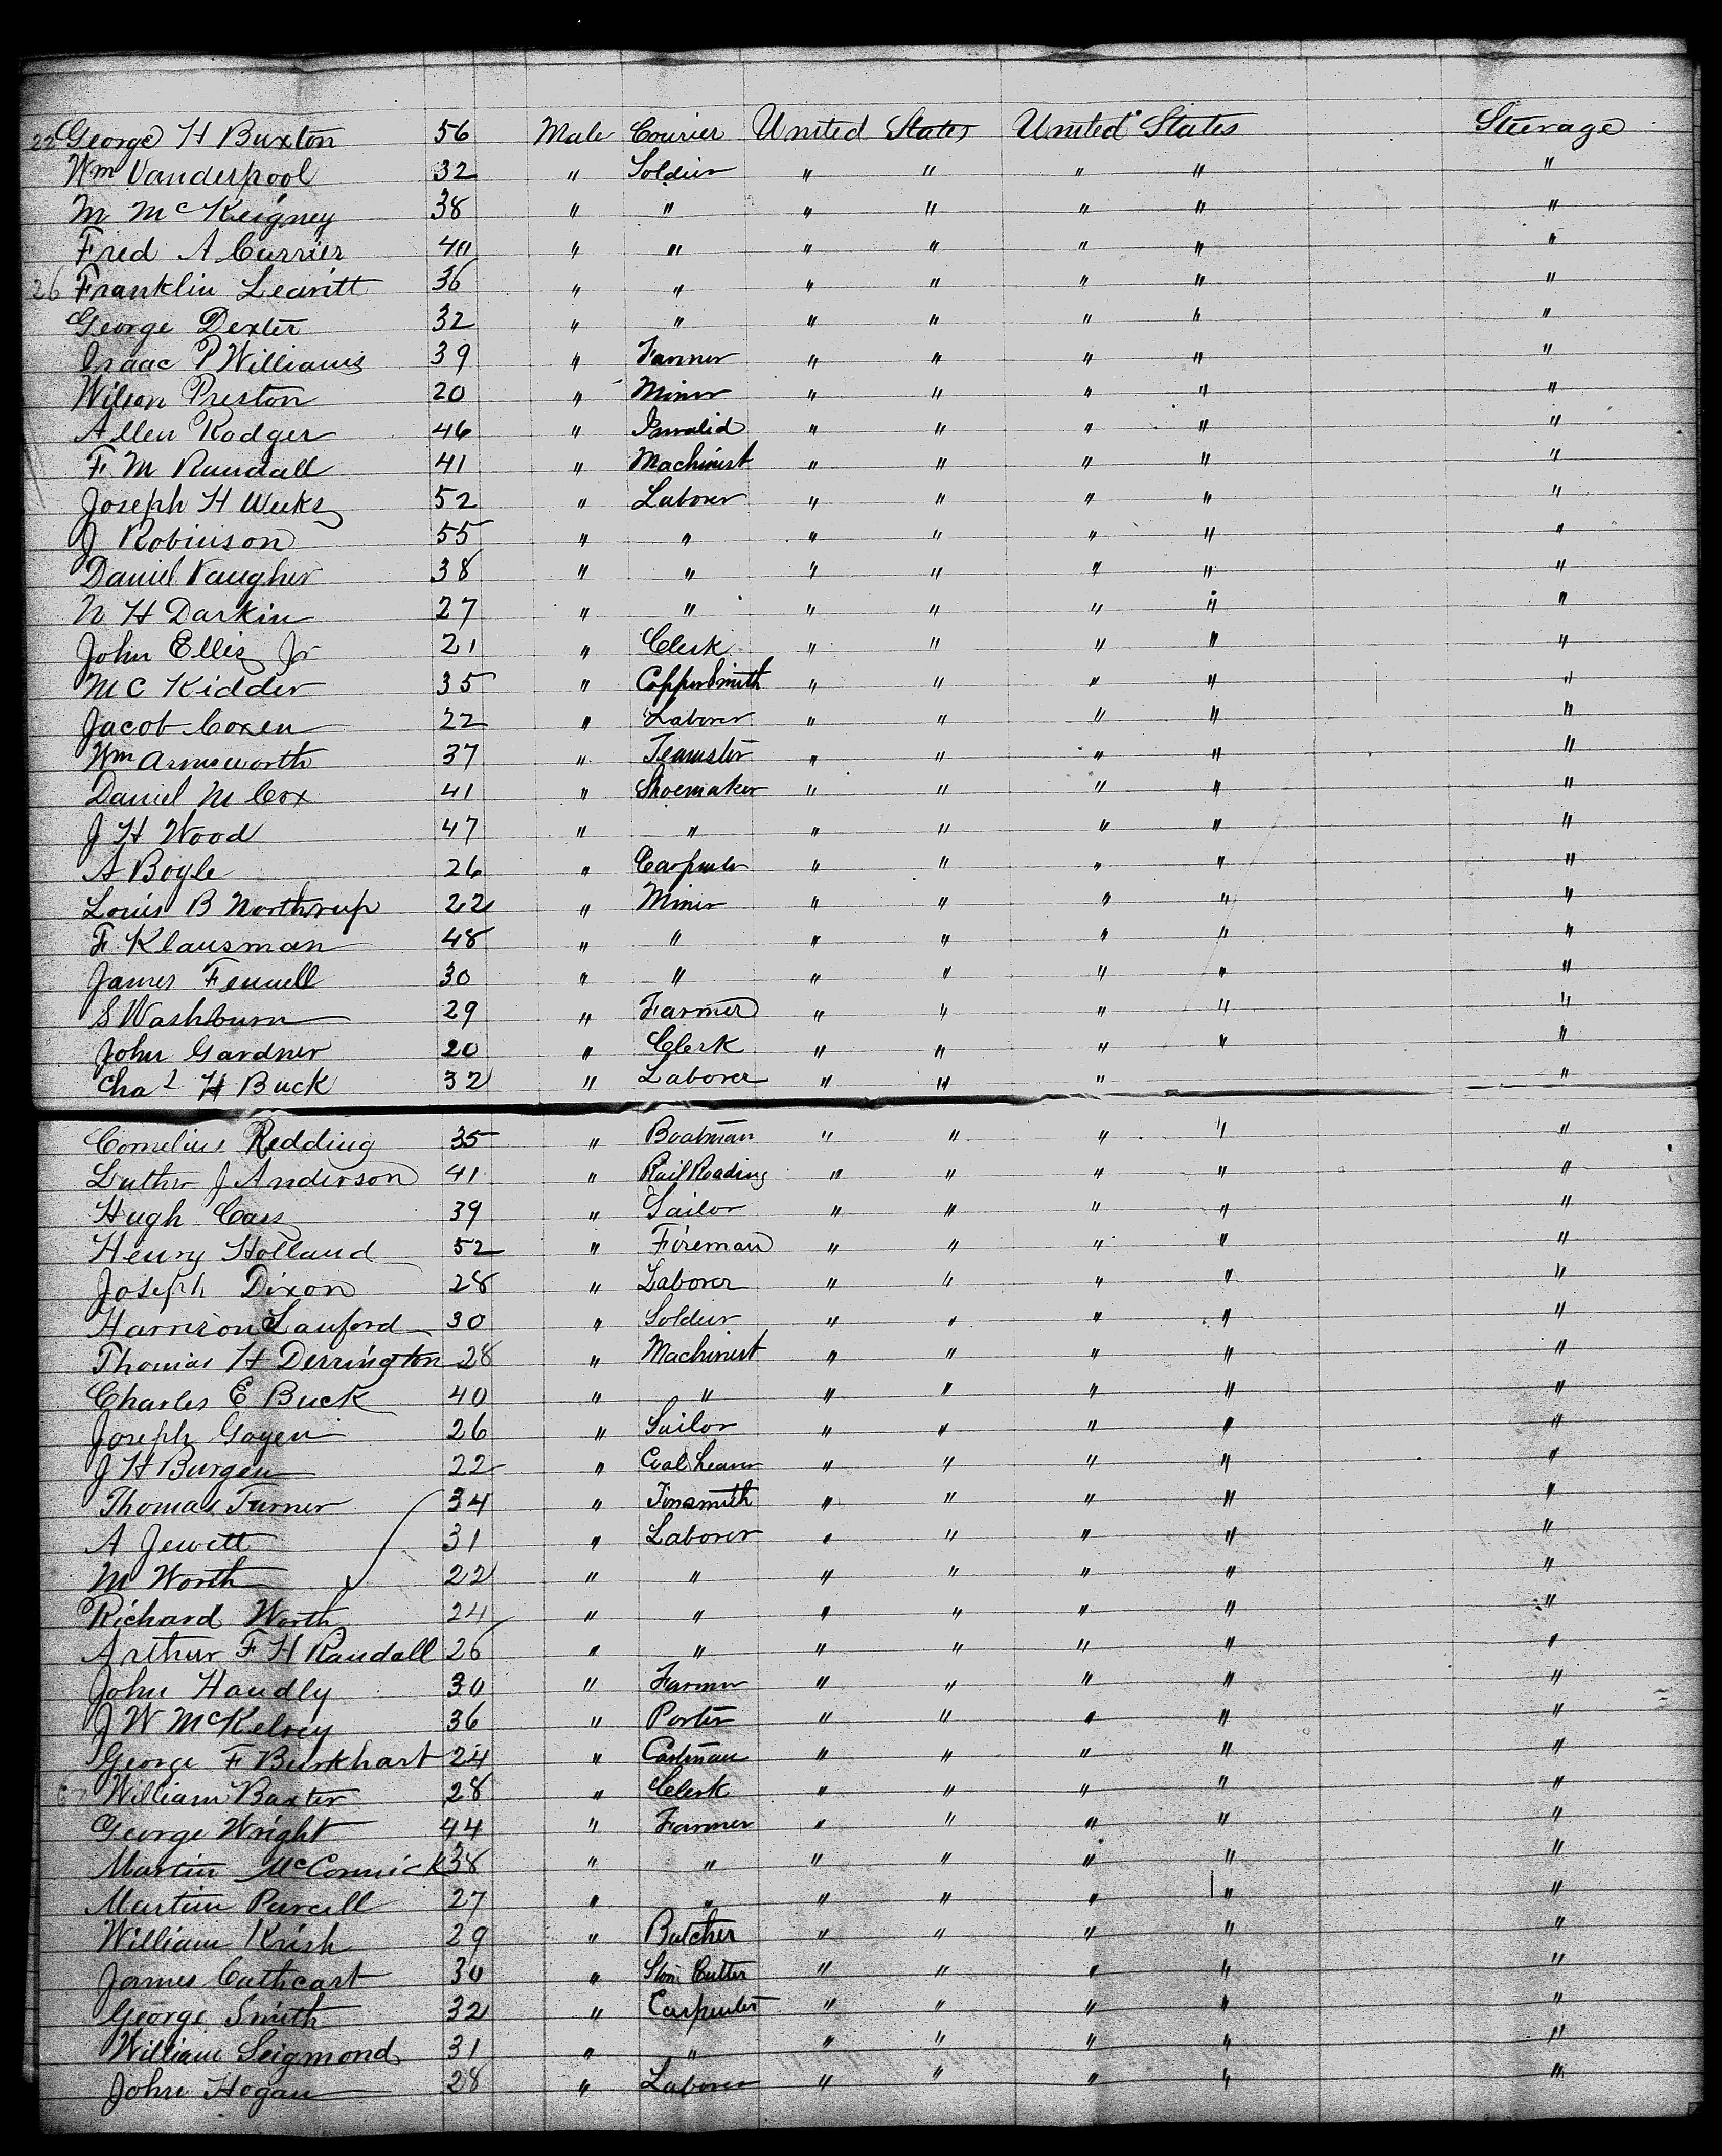 22 George H Buxton 56 Male Courier United States United States Steerage
Wm Vanderpool 32 " Soldier " " " " "
M McKeigney 38 " " " " " " "
Fred A Currier 40 " " " " " " "
26 Franklin Leavitt 36 " " " " " " "
George Dexter 32 " " " " " " "
Isaac P Williams 39 " Farmer " " " " "
Wilson Preston 20 " Miner " " " " "
Allen Rodger 46 " Invalid " " " " "
F M Randall 41 " Machinist " " " " "
Joseph H Weeks 52 " Laborer " " " " "
J Robinson 55 " " " " " " "
Daniel Vaugher 38 " " " " " " "
N H Darkin 27 " " " " " " "
John Ellis Jr 21 " Clerk " " " " "
M C Kidder 35 " CopperSmith " " " " "
Jacob Coxen 22 " Laborer " " " " "
Wm Armsworth 37 " Teamster " " " " "
Daniel M Cox 41 " Shoemaker " " " " "
J H Wood 47 " " " " " " "
A Boyle 26 " Carpenter " " " " "
Louis B Northrup 22 " Miner " " " " "
F Klausman 48 " " " " " " "
James Fennell 30 " " " " " " "
S Washburn 29 " Farmer " " " " "
John Gardner 20 " Clerk " " " " "
Chas H Buck 32 " Laborer " " " "
Cornelius Redding 35 " Boatman " " " " "
Luther J Anderson 41 " RailRoading " " " " "
Hugh Cass 39 " Sailor " " " " "
Henry Holland 52 " Fireman " " " " "
Joseph Dixon 28 " Laborer " " " " "
Harrison Lanford 30 " Soldier " " " " "
Thomas H Derrington 28 " Machinist " " " " "
Charles E Buck 40 " " " " " " "
Joseph Goyen 26 " Sailor " " " " "
J H Burgen 22 " Coal heaver " " " " "
Thomas Turner 34 " Tinsmith " " " " "
A Jewett 31 " Laborer " " " " "
M Worth 22 " " " " " " "
Richard Worth 24 " " " " " " "
Arthur F H Randall 26 " " " " " " "
John Handly 30 " Farmer " " " " "
J W McKelvey 36 " Porter " " " " "
George F Burkhart 24 " Cartman " " " " "
William Baxter 28 " Clerk " " " " "
George Wright 44 " Farmer " " " " "
Martin McCormick 38 " " " " " " "
Martin Purcell 27 " " " " " " "
William Krish 29 " Butcher " " " " "
James Cuthcart 30 " Stone Cutter " " " " "
George Smith 32 " Carpenter " " " " "
William Seigmond 31 " " " " " " "
John Hogan 28 " Laborer " " " " "